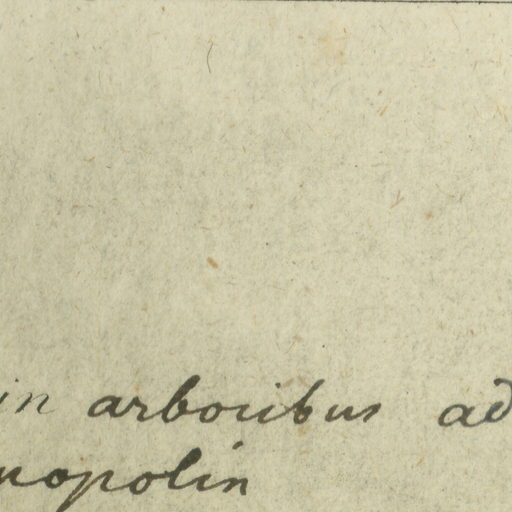 in arboribus ad
nopolin